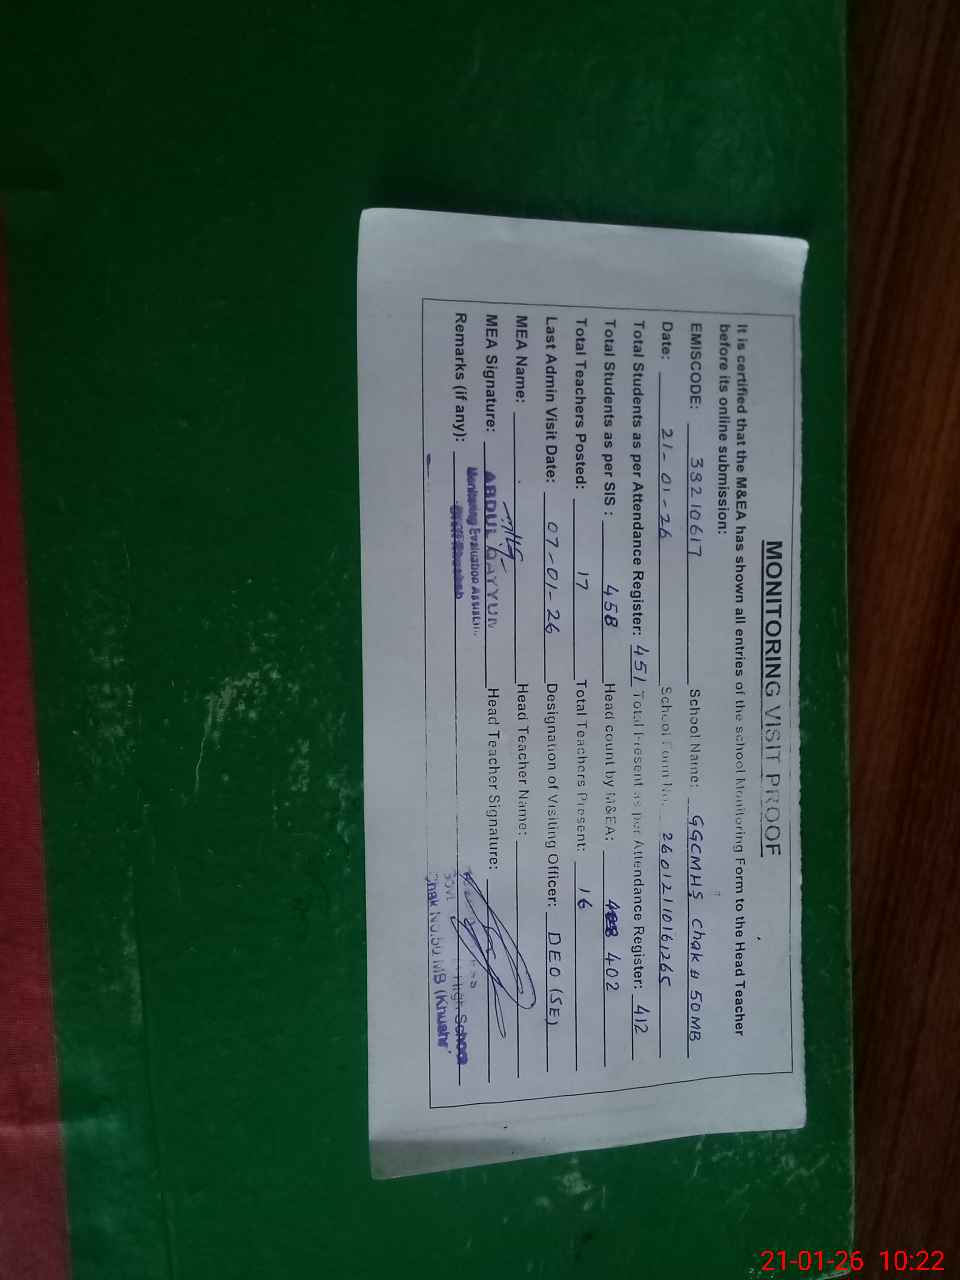 MONITORING VISIT PROOF
It is certified that the M&EA has shown all entries of the school Monitoring Form to the Head Teacher
before its online submission:
EMISCODE: 38210617 School Name: GGCMHS Chak # 50MB
Date: 21-01-26 School Form No. 26012110161265
Total Students as per Attendance Register: 451 Total Present as per Attendance Register: 412
Total Students as per SIS : 458 Head count by M&EA: 402
Total Teachers Posted: 17 Total Teachers Present: 16
Last Admin Visit Date: 07-01-26 Designation of Visiting Officer: DEO (SE)
MEA Name: Head Teacher Name:
MEA Signature: ABDUL QAYYUM Head Teacher Signature:
Monitoring Evaluation
Remarks (if any):
High School
Chak No.50 MB (Khushab)
21-01-26 10:22